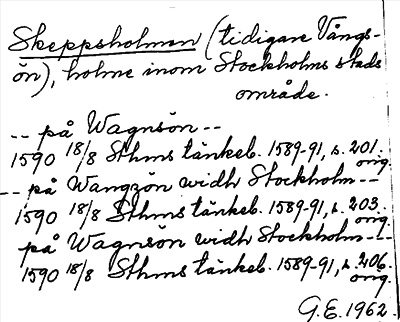 Skeppsholmen (tidigare Vångs-
ön), holme inom Stockholms stads
område.
-- på Wagnsön --
1590 18/8 Sthms tänkeb. 1589-91, s. 201.
orig.
-- på Wangzön widh Stockholm --
1590 18/8 Sthms tänkeb. 1589-91, s. 203.
orig.
på Wagnsön widh Stockholm --
1590 18/8 Sthms tänkeb. 1589-91, s. 206.
orig.
G.E. 1962.